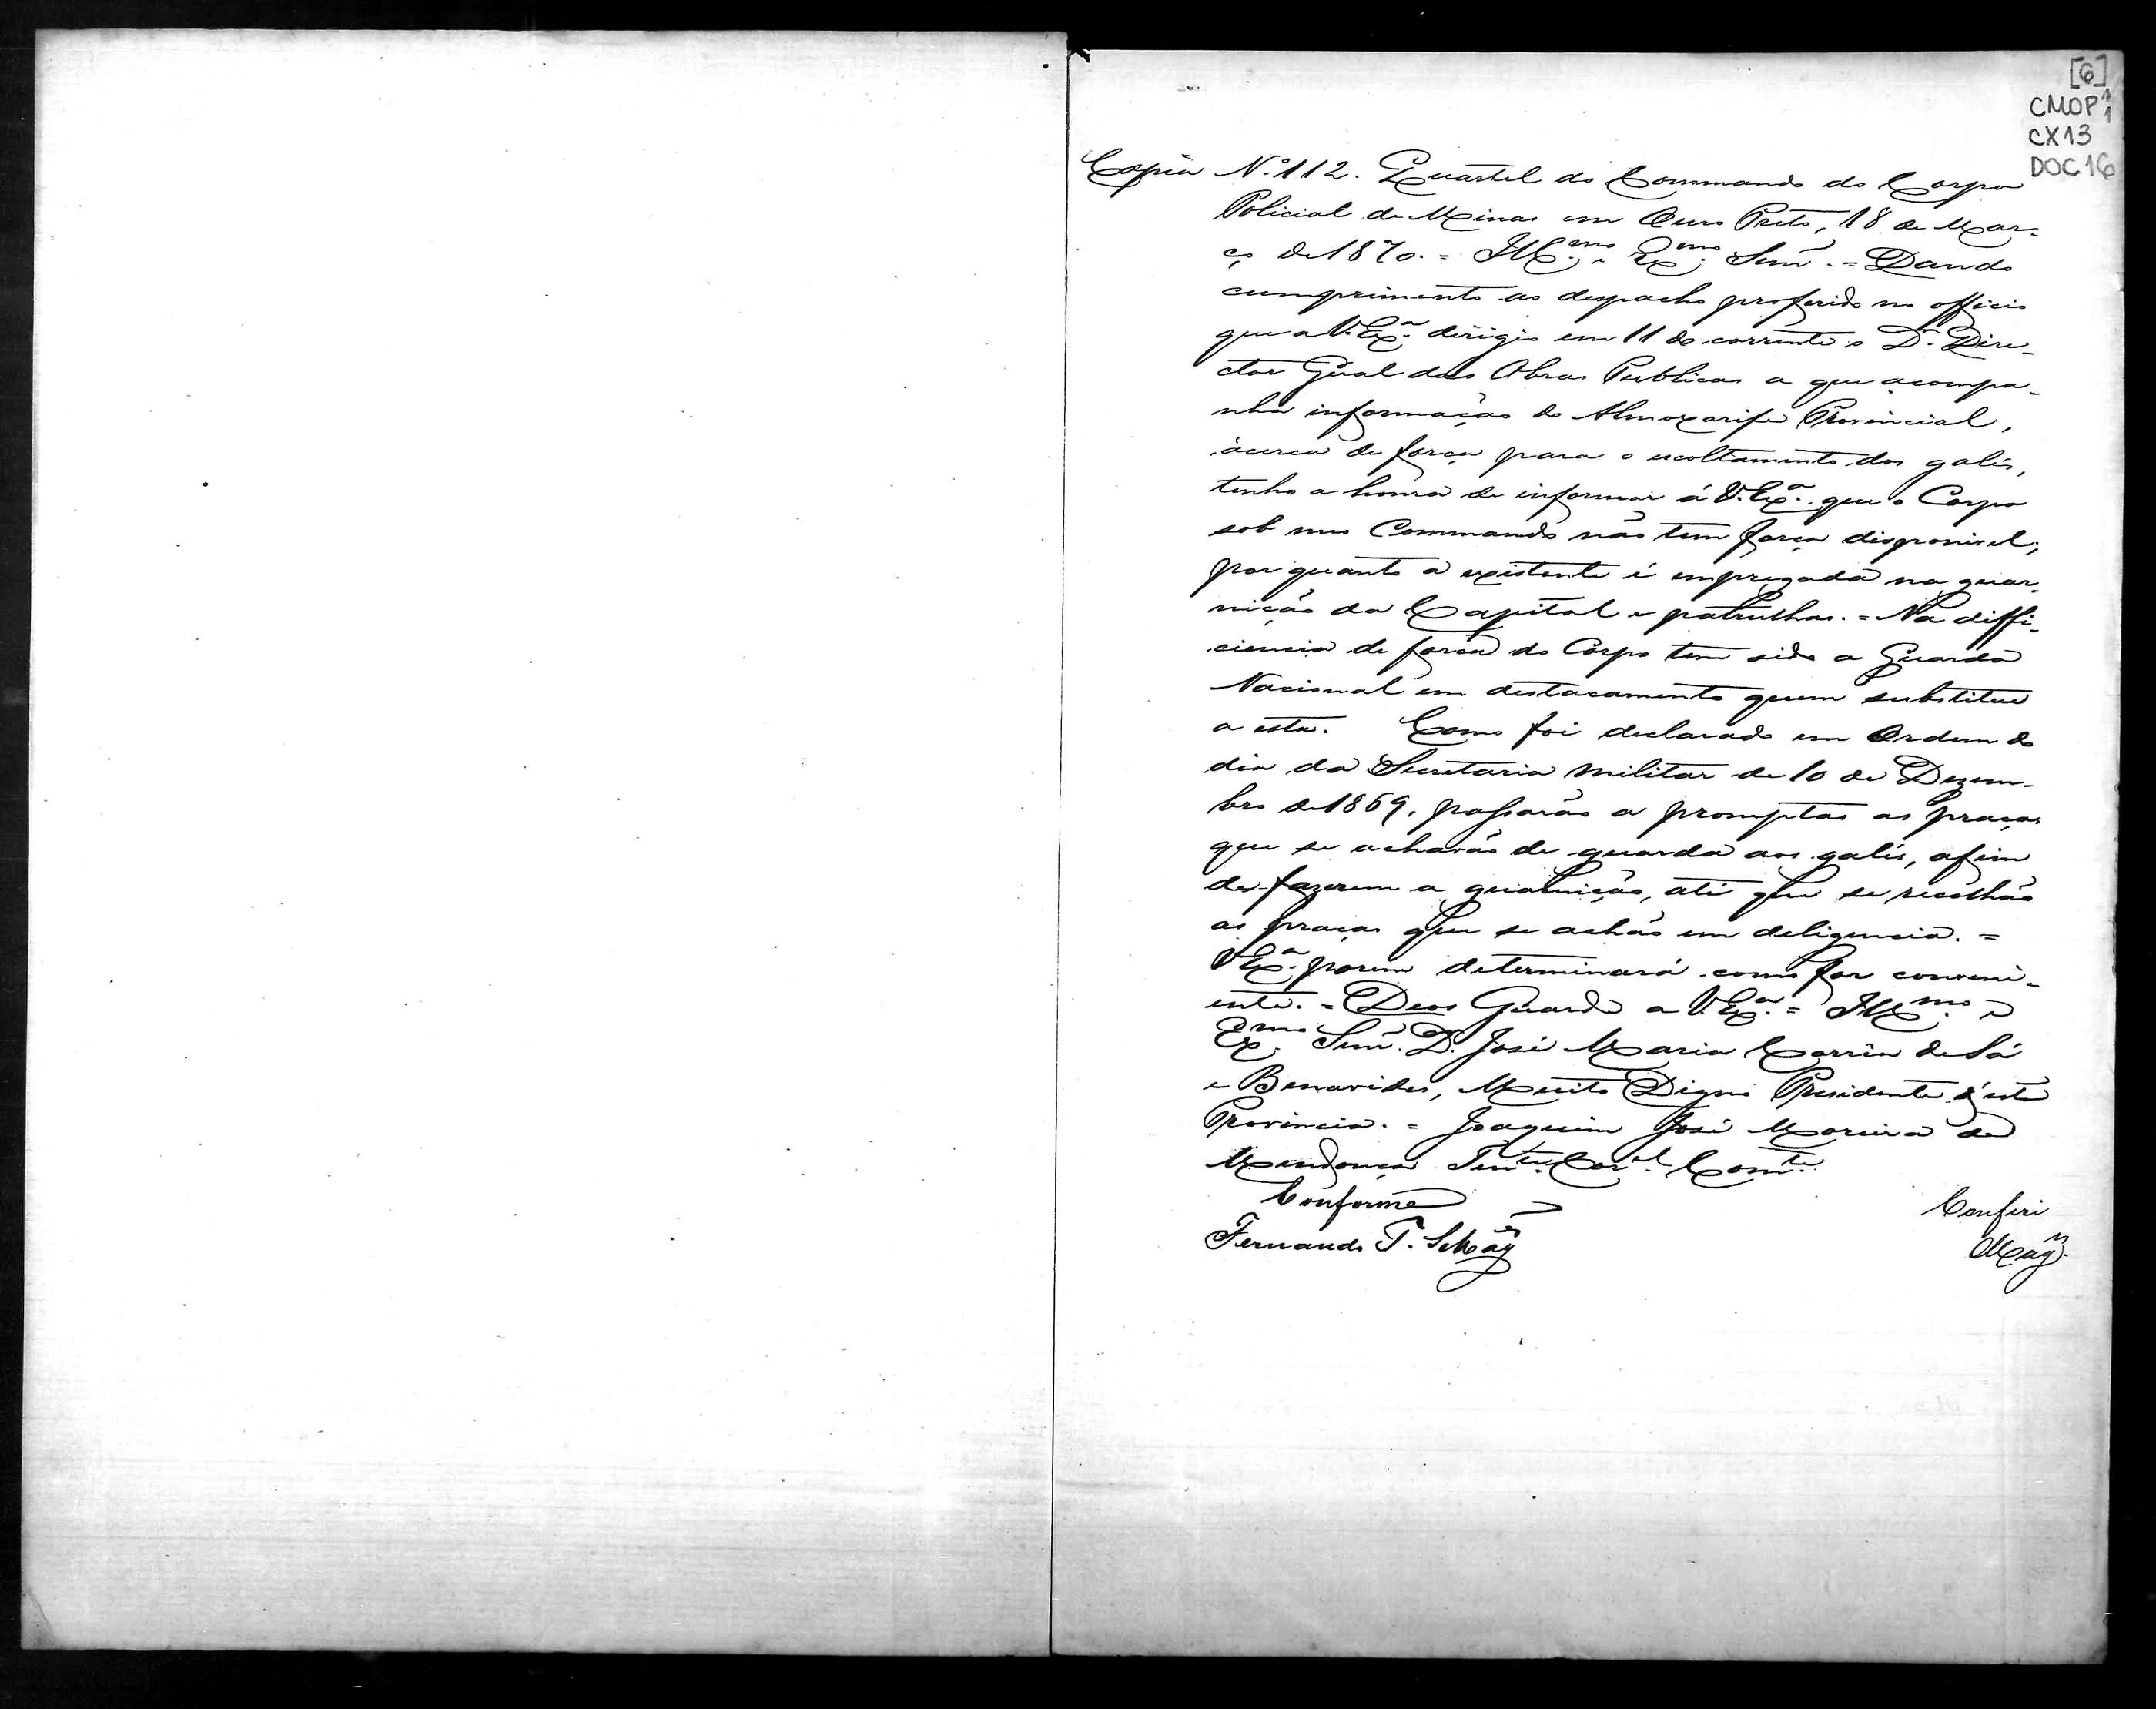 [6]
CMOP 1/1
CX13
DOC 16
Copia Nº 112. Quartel do Commando do Corpo
Policial de Minas em Ouro Preto, 18 de Mar-
ço de 1870. = Illmo. e Exmo. Senr. = Dando
cumprimento ao despacho proferido no officio
que a V. Exa. dirigio em 11 do corrente o Dr. Dire-
ctor Geral das Obras Publicas a que acompa-
nha informação do Almoxarife Provincial,
ácerca de força para o escoltamento dos galés,
tenho a honra de informar á V. Exa. que o Corpo
sob meu Commando não tem força disponivel;
por quanto a existente é empregada na guar-
nição da Capital e patrulhas. = Na diffi-
ciencia de força do Corpo tem sido a Guarda
Nacional em destacamento quem substitue
a esta. Como foi declarado em Ordem do
dia da Secretaria Militar de 10 de Dezem-
bro de 1869, passarão a promptas as praças
que se achavão de guarda aos galés, afim
de fazerem a guarnição, até que se recolhão
as praças que se achão em deligencia. =
V Exa. porem determinará como for conveni-
ente. = Deos Guarde a V. Exa. = Illmo. e
Exmo. Senr. Dr. José Maria Corrêa de Sá
e Benavides, Muito Digno Presidente d'esta
Provincia. = Joaquim José Moreira de
Mendonça Tente. Corel. Comte.
Conforme
Conferi
Fernando T.